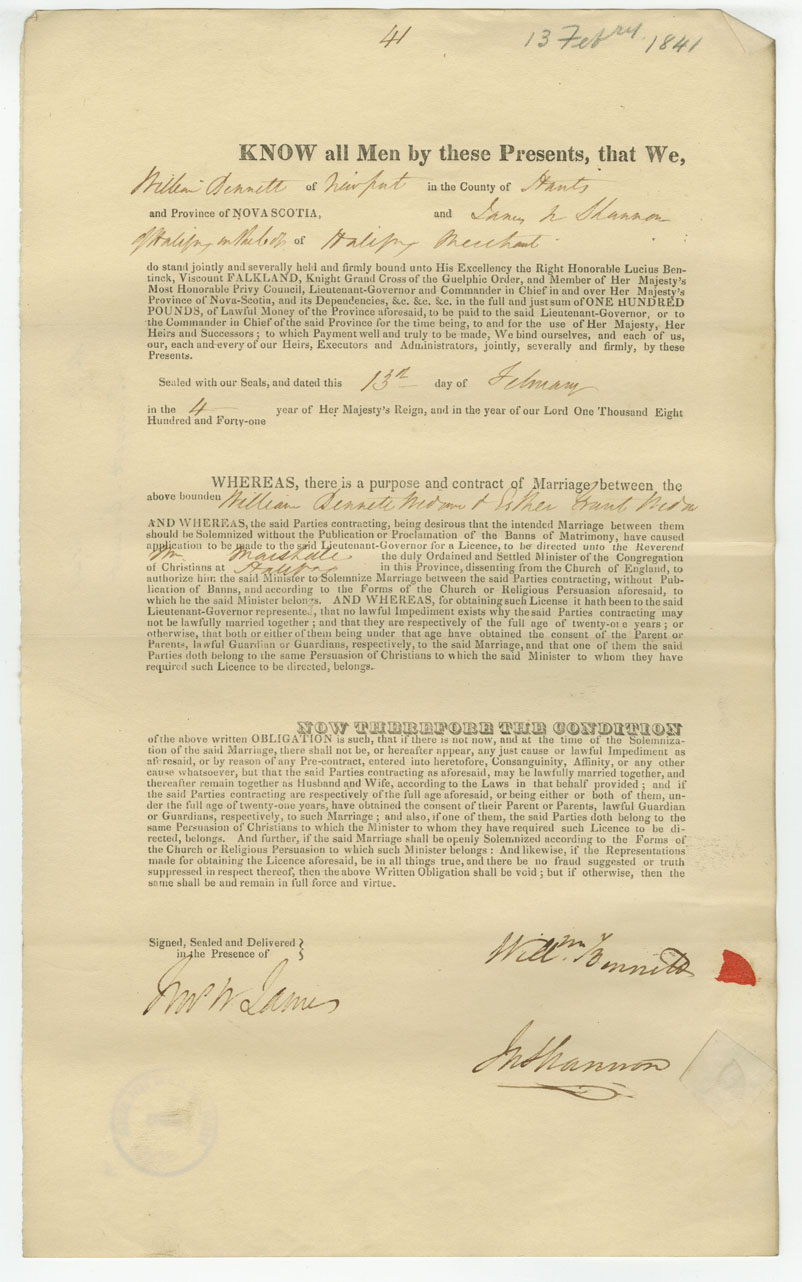 41
13 Febry. 1841
KNOW all Men by these Presents, that We,
William Bennett of Newport in the County of Hants
and Province of NOVA SCOTIA, and James N Shannon
of Halifax in the of Halifax Merchant
do stand jointly and severally held and firmly bound unto His Excellency the Right Honorable Lucius Ben-
tinck, Viscount FALKLAND, Knight Grand Cross of the Guelphic Order, and Member of Her Majesty's
Most Honorable Privy Council, Lieutenant-Governor and Commander in Chief in and over Her Majesty's
Province of Nova-Scotia, and its Dependencies, &c. &c. &c. in the full and just sum of ONE HUNDRED
POUNDS, of Lawful Money of the Province aforesaid, to be paid to the said Lieutenant-Governor, or to
the Commander in Chief of the said Province for the time being, to and for the use of Her Majesty, Her
Heirs and Successors; to which Payment well and truly to be made, We bind ourselves, and each of us,
our, each and every of our Heirs, Executors and Administrators, jointly, severally and firmly, by these
Presents.
Sealed with our Seals, and dated this 13th day of February
in the 4 year of Her Majesty's Reign, and in the year of our Lord One Thousand Eight
Hundred and Forty-one
WHEREAS, there is a purpose and contract of Marriage between the
above bounden William Bennett Widower & Esther Grant Widow
AND WHEREAS, the said Parties contracting, being desirous that the intended Marriage between them
should be Solemnized without the Publication or Proclamation of the Banns of Matrimony, have caused
application to be made to the said Lieutenant-Governor for a Licence, to be directed unto the Reverend
Mr. Marshall the duly Ordained and Settled Minister of the Congregation
of Christians at Halifax in this Province, dissenting from the Church of England, to
authorize him the said Minister to Solemnize Marriage between the said Parties contracting, without Pub-
lication of Banns, and according to the Forms of the Church or Religious Persuasion aforesaid, to
which he the said Minister belongs. AND WHEREAS, for obtaining such License it hath been to the said
Lieutenant-Governor represented, that no lawful Impediment exists why the said Parties contracting may
not be lawfully married together; and that they are respectively of the full age of twenty-one years; or
otherwise, that both or either of them being under that age have obtained the consent of the Parent or
Parents, lawful Guardian or Guardians, respectively, to the said Marriage, and that one of them the said
Parties doth belong to the same Persuasion of Christians to which the said Minister to whom they have
required such Licence to be directed, belongs.
NOW THEREFORE THE CONDITION
of the above written OBLIGATION is such, that if there is not now, and at the time of the Solemniza-
tion of the said Marriage, there shall not be, or hereafter appear, any just cause or lawful Impediment as
aforesaid, or by reason of any Pre-contract, entered into heretofore, Consanguinity, Affinity, or any other
cause whatsoever, but that the said Parties contracting as aforesaid, may be lawfully married together, and
thereafter remain together as Husband and Wife, according to the Laws in that behalf provided; and if
the said Parties contracting are respectively of the full age aforesaid, or being either or both of them, un-
der the full age of twenty-one years, have obtained the consent of their Parent or Parents, lawful Guardian
or Guardians, respectively, to such Marriage; and also, if one of them, the said Parties doth belong to the
same Persuasion of Christians to which the Minister to whom they have required such Licence to be di-
rected, belongs. And further, if the said Marriage shall be openly Solemnized according to the Forms of
the Church or Religious Persuasion to which such Minister belongs: And likewise, if the Representations
made for obtaining the Licence aforesaid, be in all things true, and there be no fraud suggested or truth
suppressed in respect thereof, then the above Written Obligation shall be void; but if otherwise, then the
same shall be and remain in full force and virtue.
Signed, Sealed and Delivered
in the Presence of
Willm Bennett
W James
Jn Shannon